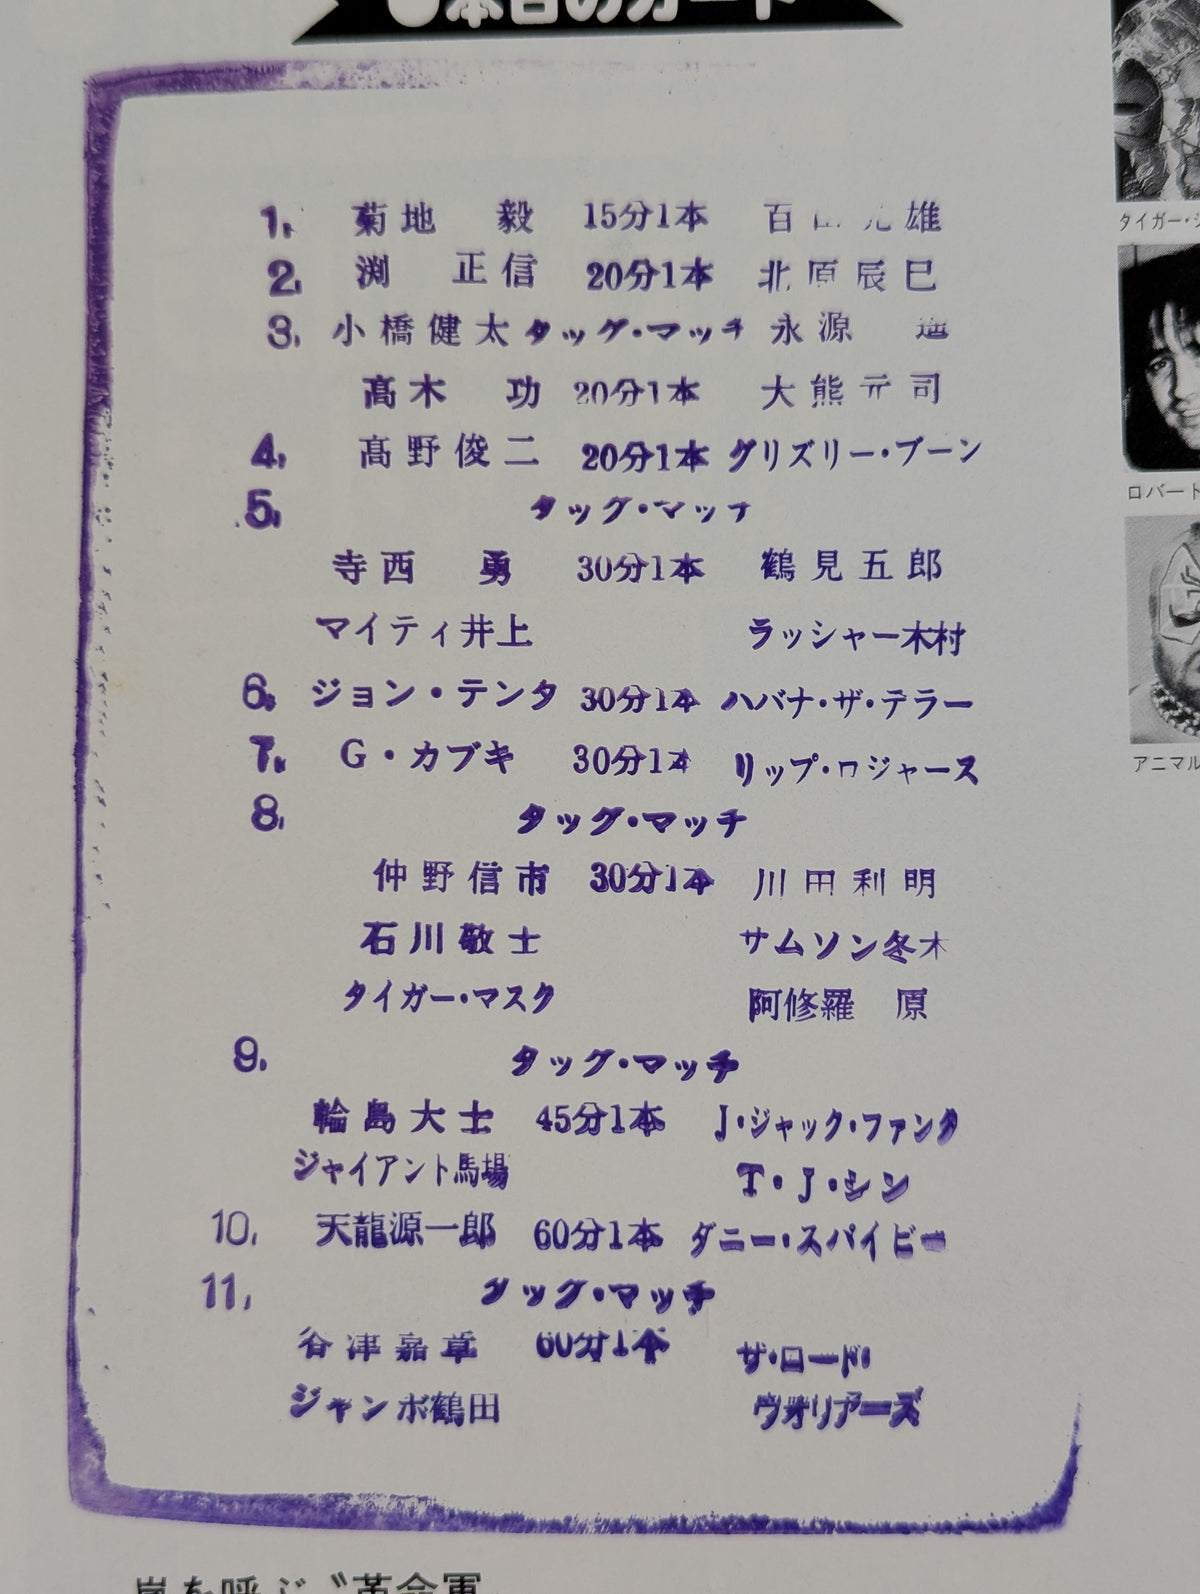 ●本日のカード
1. 菊地　毅 15分1本 百 雄
2. 渕　正信 20分1本 北原辰巳
3. 小橋健太 タッグ・マッチ 永源　遥
高木　功 20分1本 大熊元司
4. 高野俊二 20分1本 グリズリー・ブーン
5. タッグ・マッチ
寺西　勇 30分1本 鶴見五郎
マイティ井上 ラッシャー木村
6. ジョン・テンタ 30分1本 ハバナ・ザ・テラー
7. G・カブキ 30分1本 リップ・ロジャース
8. タッグ・マッチ
仲野信市 30分1本 川田利明
石川敬士 サムソン冬木
タイガー・マスク 阿修羅　原
9. タッグ・マッチ
輪島大士 45分1本 J・ジャック・ファンタ
ジャイアント馬場 T・J・シン
10. 天龍源一郎 60分1本 ダニー・スパイビー
11. タッグ・マッチ
谷津嘉章 60分1本 ザ・ロード・
ジャンボ鶴田 ウォリアーズ
タイガー・ジ
ロバート
アニマル
嵐を呼ぶ〝革命軍